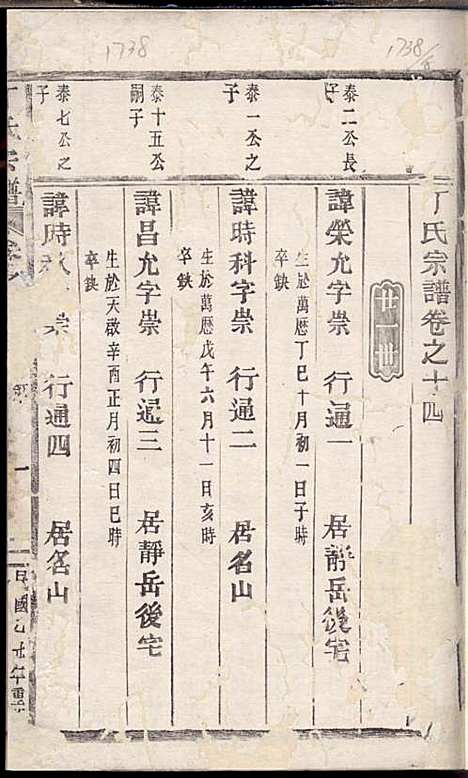 1738
1738/8
丁氏宗譜卷之十四
廿一世
泰二公長子
諱榮允字崇　行通一　居靜岳後宅
生於萬曆丁巳十月初一日子時
卒缺
泰一公之子
諱時科字崇　行通二　居名山
生於萬曆戊午六月十一日亥時
卒缺
泰十五公嗣子
諱昌允字崇　行通三　居靜岳後宅
生於天啟辛酉正月初四日巳時
卒缺
泰七公之子
諱時　崇　行通四　居名山
丁氏宗譜
一
民國乙丑年重